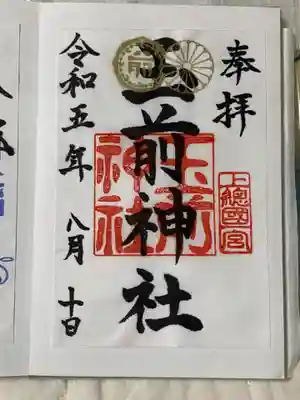 奉拝
上總國一宮
玉前神社
玉前神社
令和五年 八月 十日